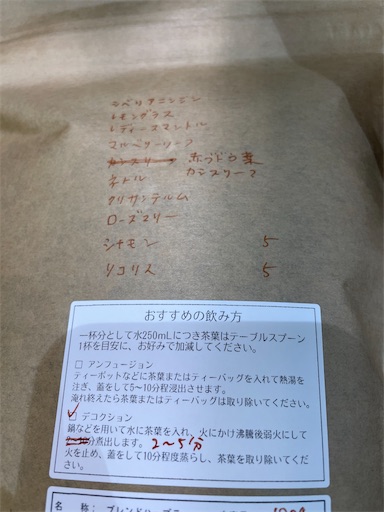 シベリアニンジン
レモングラス
レディースマントル
マルベリーリーフ
赤ブドウ葉
ネトル カシスリーフ
クリサンテルム
ローズマリー
シナモン 5
リコリス 5
おすすめの飲み方
一杯分として水250mLにつき茶葉はテーブルスプーン
1杯を目安に、お好みで加減してください。
□ アンフュージョン
ティーポットなどに茶葉またはティーバッグを入れて熱湯を
注ぎ、蓋をして5～10分程浸出させます。
淹れ終えたら茶葉またはティーバッグは取り除いてください。
□ デコクション
鍋などを用いて水に茶葉を入れ、火にかけ沸騰後弱火にして
分煮出します。 2～5分
火を止め、蓋をして10分程度蒸らし、茶葉を取り除いてくだ
さい。
名 称: ブレンドハーブ